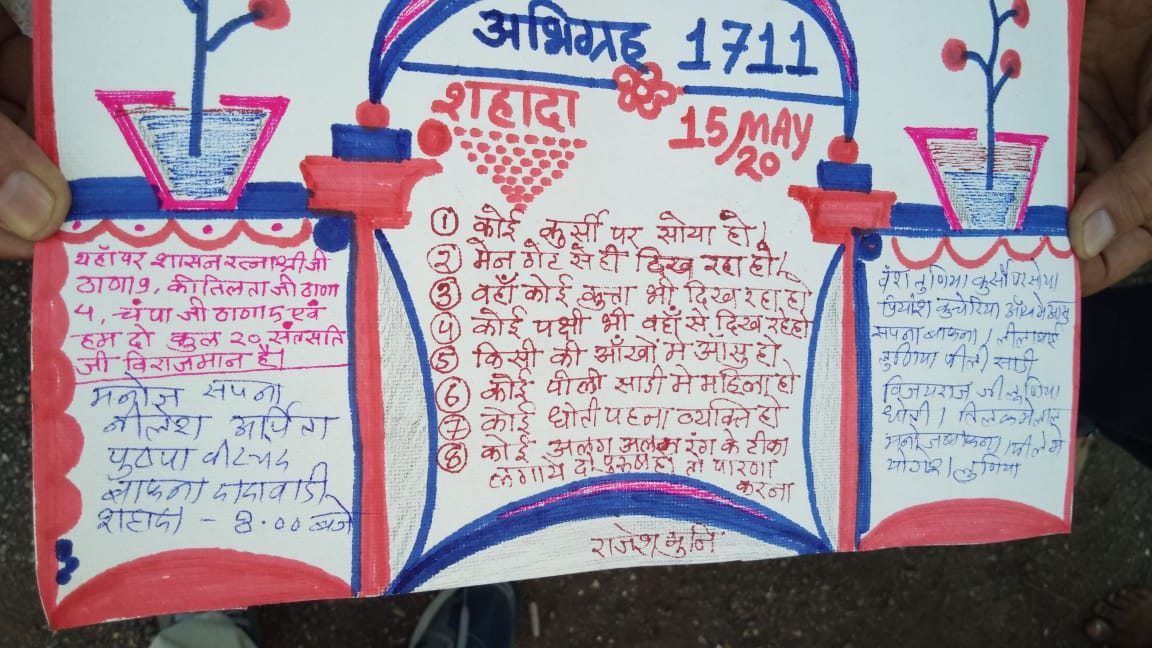 अभिग्रह 1711
शहादा
15/MAY
20
① कोई कुर्सी पर सोया हो।
② मेन गेट से ही दिख रहा हो।
③ वहाँ कोई कुत्ता भी दिख रहा हो
④ कोई पक्षी भी वहाँ से दिख रहे हो
⑤ किसी की आँखों में आसु हो
⑥ कोई पीली साडी मे महिला हो
⑦ कोई धोती पहना व्यक्ति हो
⑧ कोई अलग अलग रंग के टीका
लगाये दो पुरुष हो तो पारणा
करना
राजेश मुनि
यहाँ पर शासन रत्नाश्रीजी
ठाणा 9, कीतिलता जी ठाणा
4, चंपा जी ठाणा 5 एवं
हम दो कुल २० संतसति
जी विराजमान है।
मनोज सपना
नीलेश अर्पिता
पुष्पा
बाफना दादावाडी
शहादा - 8.00 बजे
लुणिया कुर्सी पर सोया
प्रियांश कुचेरिया
सपना बाफना। लीलाबाई
लुणिया पीली साडी
विजयराज जी लुणिया
धोती। तिलक
मनोज बाफना।
योगेश लुणिया